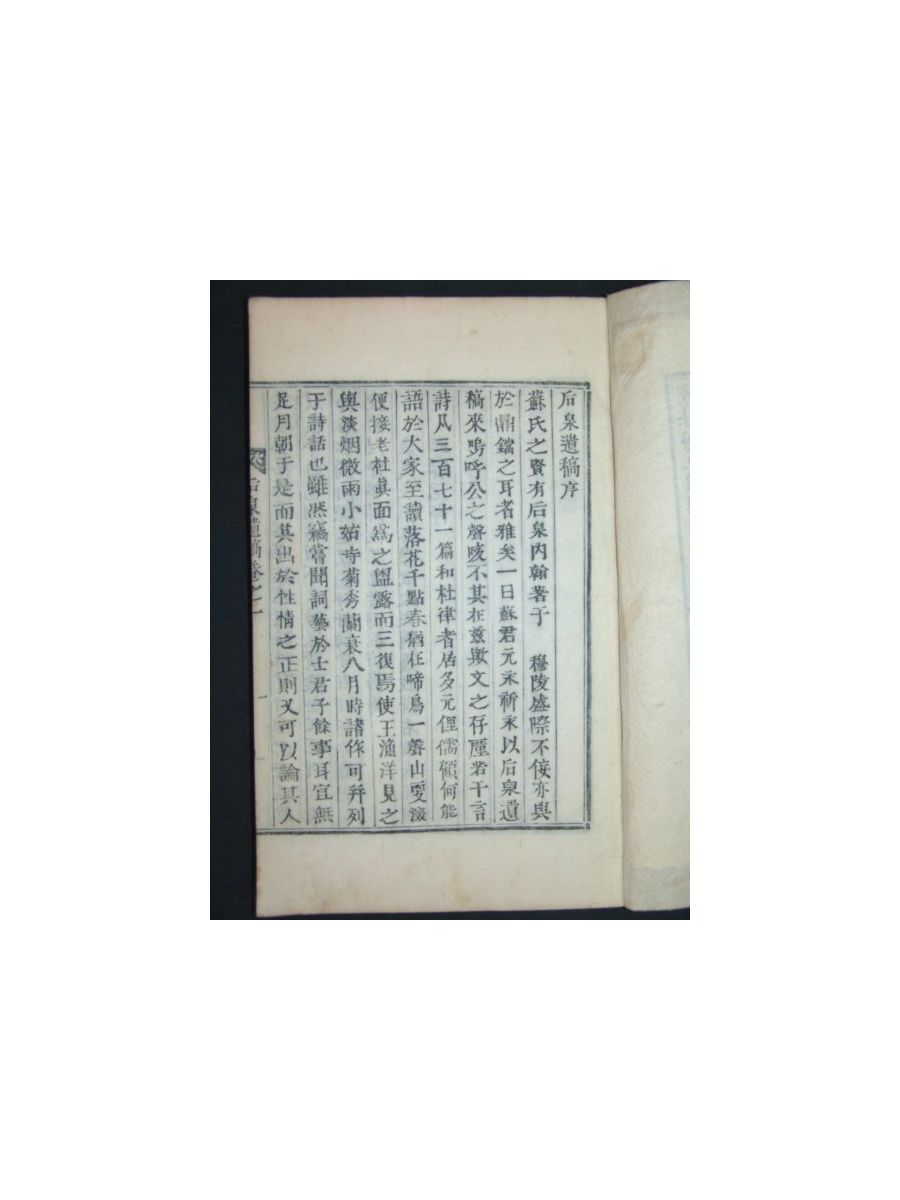 后泉遺稿序
蘇氏之賢有后泉內翰著于　穆陵盛際不佞亦與
於鼎鐺之耳者雅矣一日蘇君元永祈永以后泉遺
稿來嗚呼公之聲咳不其在玆歟文之存廑若干言
詩凡三百七十一篇和杜律者居多元俚儒顧何能
語於大家至讀落花千點春猶在啼鳥一聲山更深
便接老杜眞面爲之盥露而三復焉使王漁洋見之
與淡烟微雨小姑寺菊秀蘭衰八月時諸作可并列
于詩話也雖然竊嘗聞詞藝於士君子餘事耳宜無
足月朝于是而其出於性情之正則又可以論其人
后泉遺稿卷之一
一